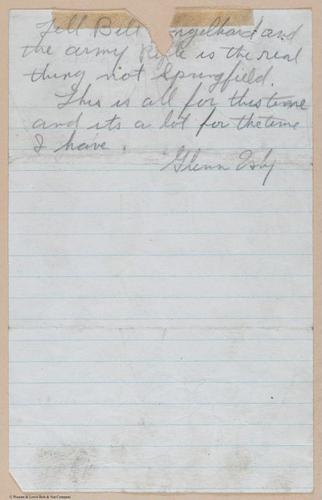 Tell Bill Engelhard and
the army Rifle is the real
thing not Springfield.
This is all for this time
and its a lot for the time
I have.
Glenn